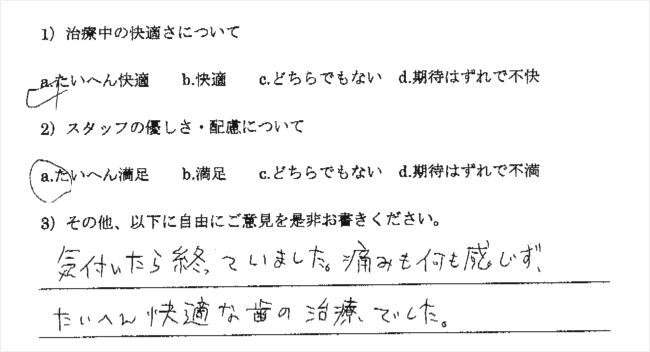 1）治療中の快適さについて
a.たいへん快適　b.快適　c.どちらでもない　d.期待はずれで不快
2）スタッフの優しさ・配慮について
a.たいへん満足　b.満足　c.どちらでもない　d.期待はずれで不満
3）その他、以下に自由にご意見を是非お書きください。
気付いたら終っていました。痛みも何も感じず、
たいへん快適な歯の治療でした。